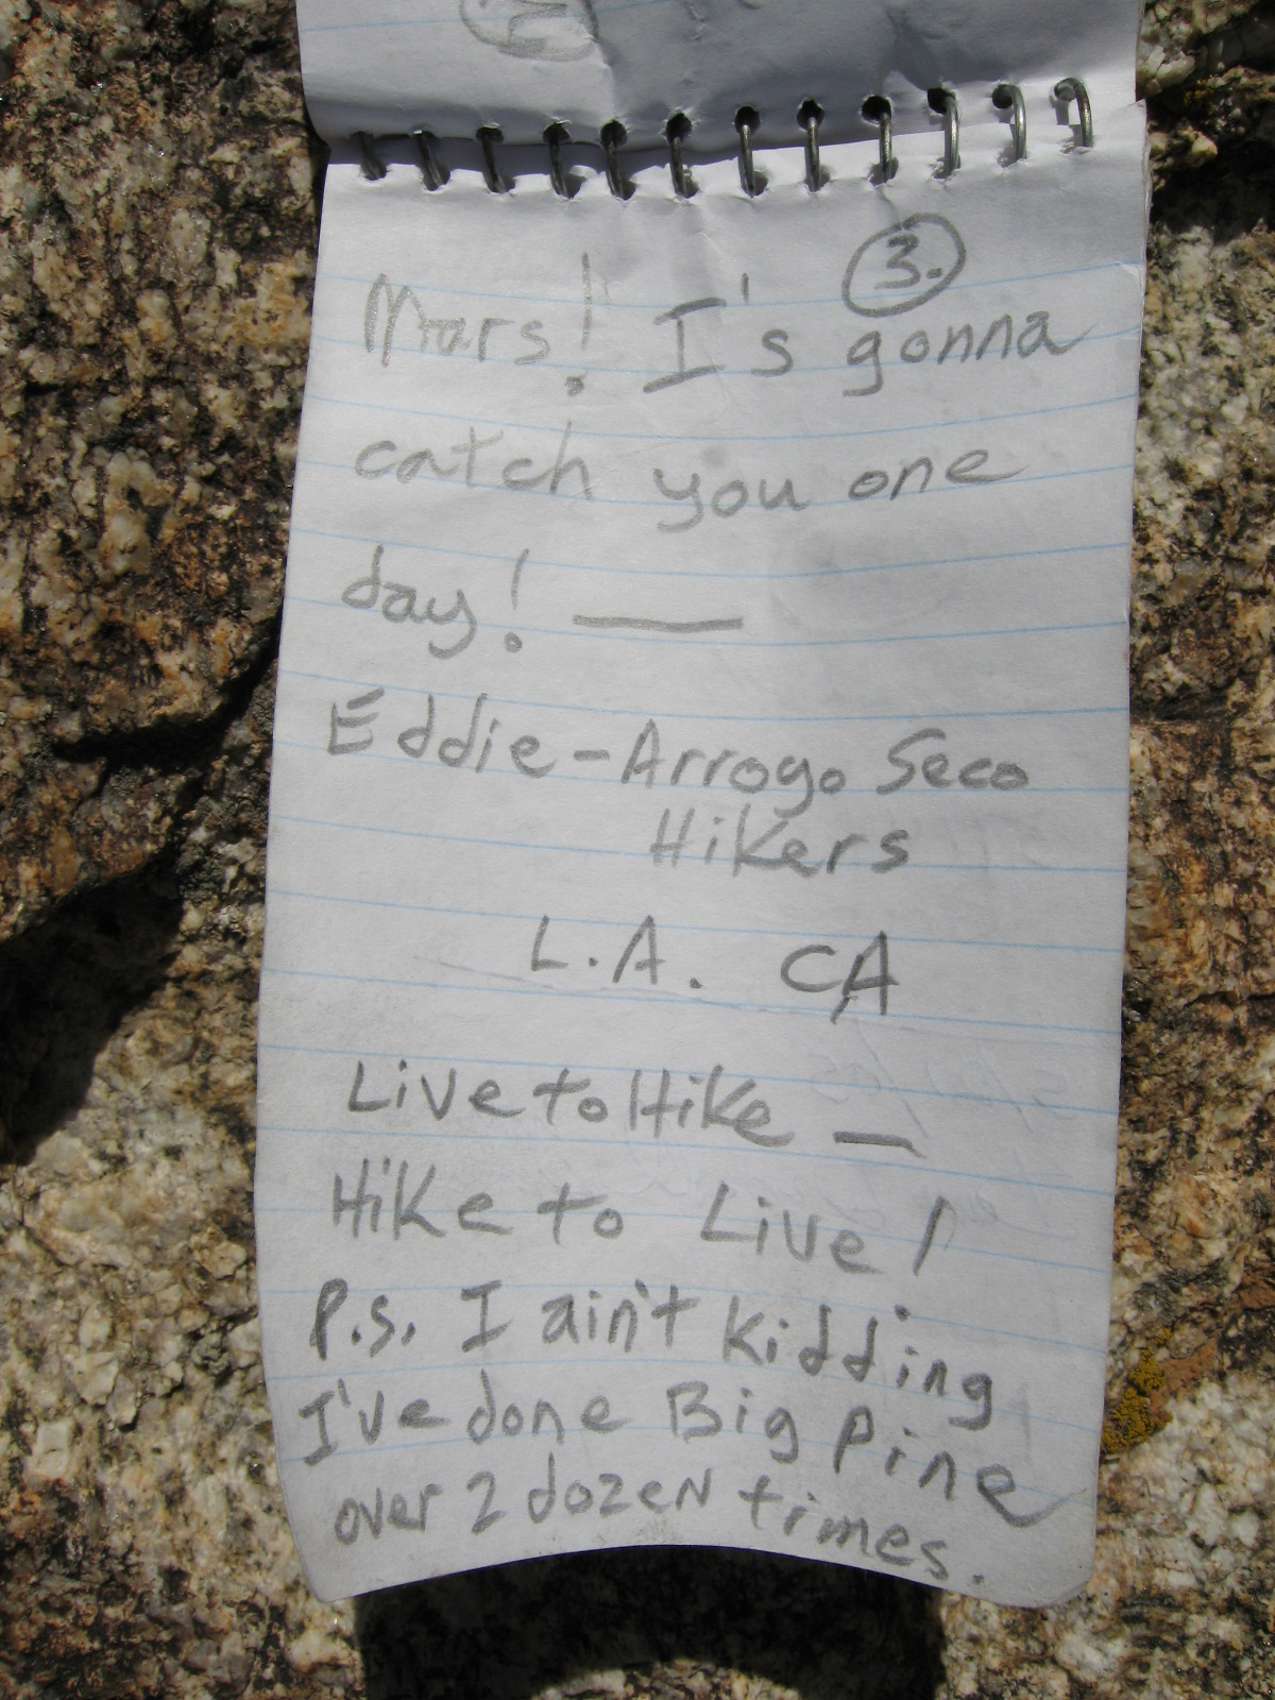 3.
Mars! I's gonna
catch you one
day! —
Eddie - Arroyo Seco
Hikers
L.A. CA
Live to Hike —
Hike to Live!
P.S. I ain't kidding
I've done Big Pine
over 2 dozen times.